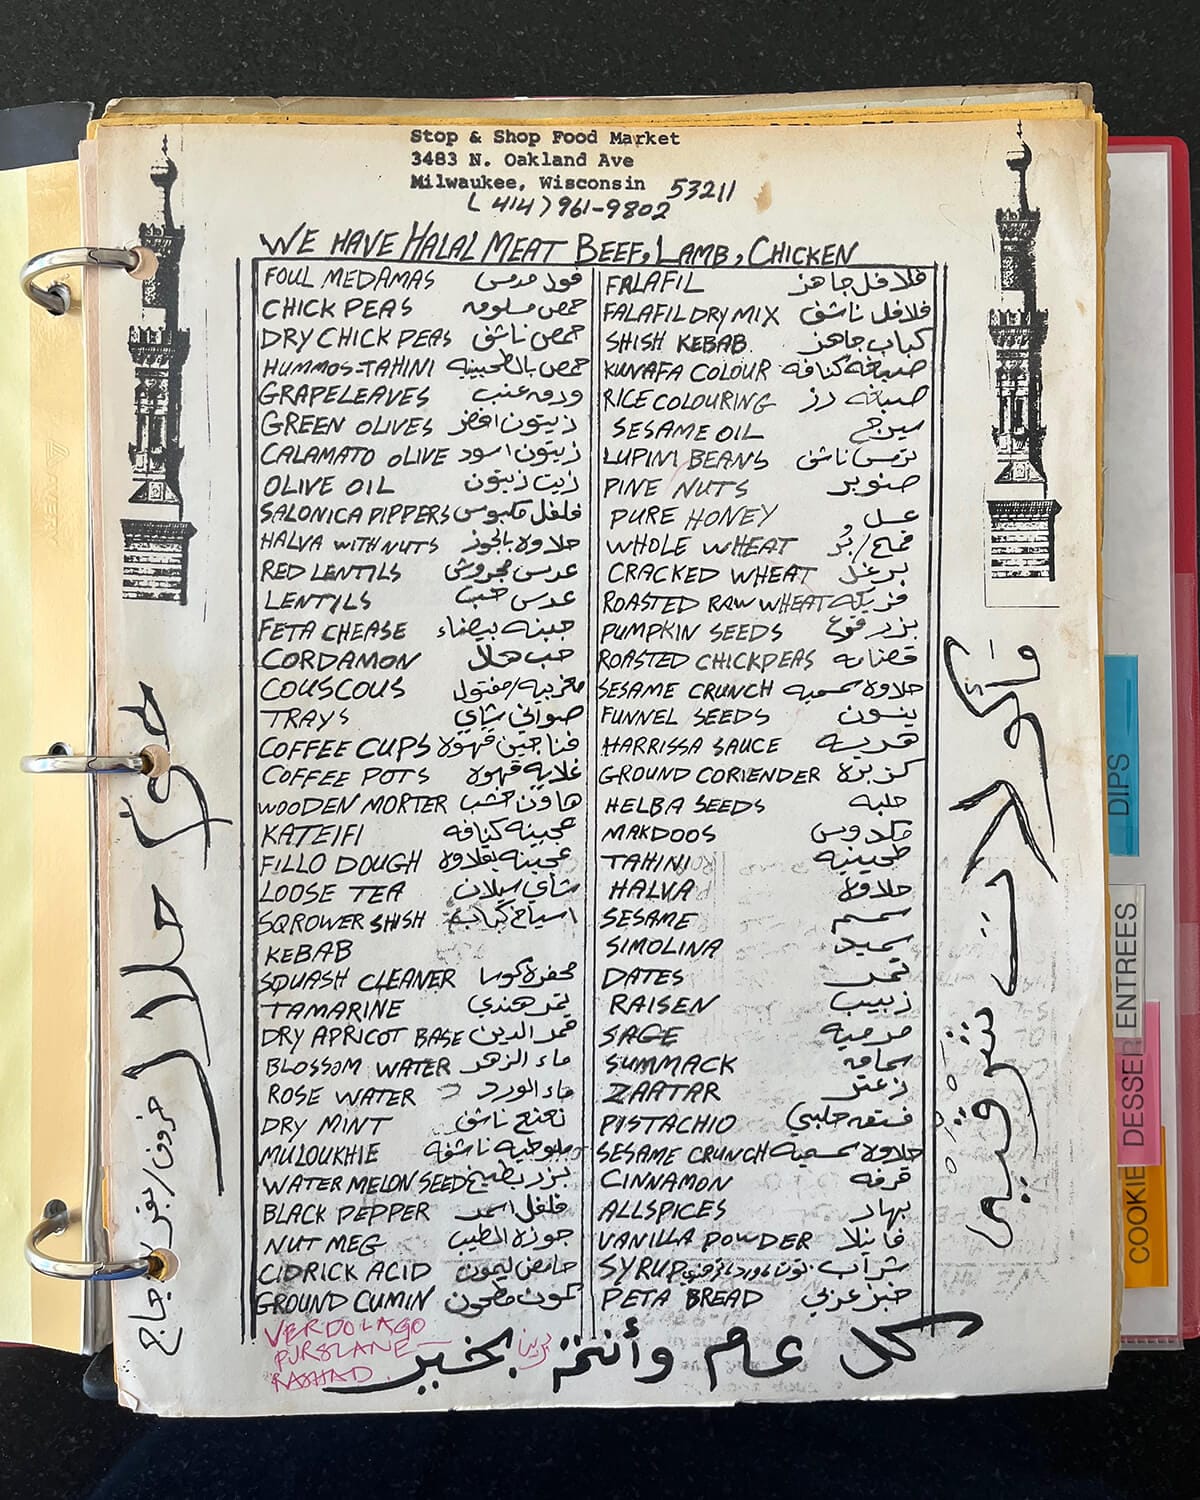 Stop & Shop Food Market
3483 N. Oakland Ave
Milwaukee, Wisconsin 53211
(414) 961-9802
WE HAVE HALAL MEAT BEEF, LAMB, CHICKEN
FOUL MEDAMAS فول مدمس
CHICK PEAS حمص مسلوقه
DRY CHICK PEAS حمص ناشف
HUMMOS-TAHINI حمص بالطحينيه
GRAPELEAVES ورقه عنب
GREEN OLIVES زيتون اخضر
CALAMATO OLIVE زيتون اسود
OLIVE OIL زيت زيتون
SALONICA PIPPERS فلفل مكبوس
HALVA WITH NUTS حلاوه بالجوز
RED LENTILS عدس مجروش
LENTILS عدس حب
FETA CHEASE جبنه بيضاء
CORDAMON حب هال
COUSCOUS مغربيه/مفتول
TRAYS صواني شاي
COFFEE CUPS فناجين قهوه
COFFEE POTS غلايه قهوه
WOODEN MORTER هاون خشب
KATEIFI عجينه كنافه
FILLO DOUGH عجينه بقلاوه
LOOSE TEA شاي سيلان
SQROWER SHISH اسياخ كباب
KEBAB
SQUASH CLEANER محفره كوسا
TAMARINE تمر هندي
DRY APRICOT BASE قمر الدين
BLOSSOM WATER ماء الزهر
ROSE WATER ماء الورد
DRY MINT نعنع ناشف
MULOUKHIE ملوخيه ناشفه
WATER MELON SEED بزر بطيخ
BLACK PEPPER فلفل اسود
NUT MEG جوزه الطيب
CIDRICK ACID حامض ليمون
GROUND CUMIN كمون مطحون
FALAFIL فلافل جاهز
FALAFIL DRY MIX فلافل ناشف
SHISH KEBAB كباب جاهز
KUNAFA COLOUR صباغه كنافه
RICE COLOURING صباغه رز
SESAME OIL سيرج
LUPINI BEANS ترمس ناشف
PINE NUTS صنوبر
PURE HONEY عسل
WHOLE WHEAT قمح/بُر
CRACKED WHEAT برغل
ROASTED RAW WHEAT فريكه
PUMPKIN SEEDS بزر قرع
ROASTED CHICKPEAS قضامه
SESAME CRUNCH حلاوه سمسميه
FUNNEL SEEDS ينسون
HARRISSA SAUCE هريسه
GROUND CORIENDER كزبره
HELBA SEEDS حلبه
MAKDOOS مكدوس
TAHINI طحينيه
HALVA حلاوه
SESAME سمسم
SIMOLINA سميد
DATES تمر
RAISEN زبيب
SAGE مرميه
SUMMACK سماقه
ZAATAR زعتر
PISTACHIO فستقه حلبي
SESAME CRUNCH حلاوه سمسميه
CINNAMON قرفه
ALLSPICES بهار
VANILLA POWDER فانيلا
SYRUP شراب
PETA BREAD خبز عربي
VERDOLAGO
PURSLANE
RASHAD
كل عام وأنتم بخير
حلال
خروف/بقر/جاج
مأكولات شرقيه
DIPS
ENTREES
DESSE
COOKIE
AVERY